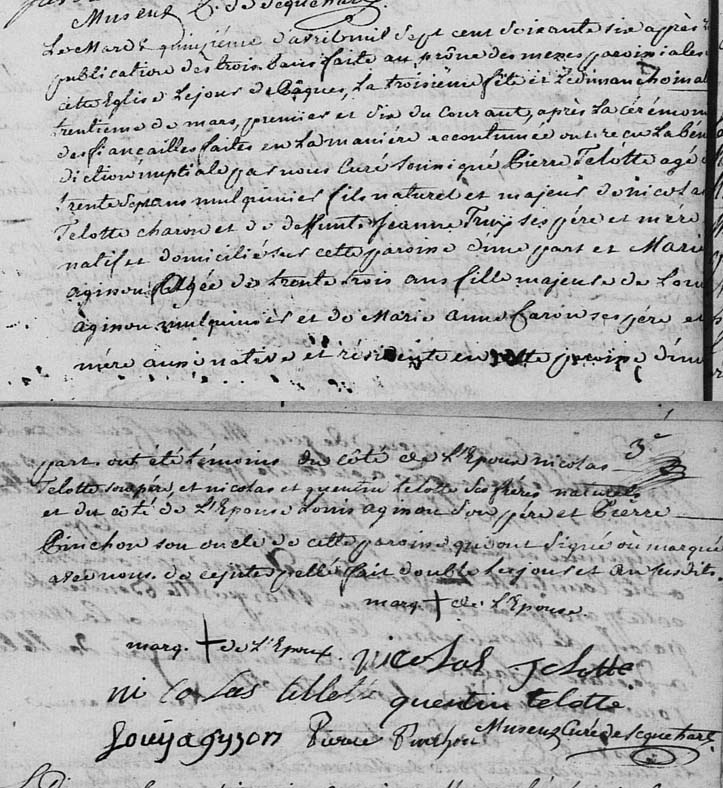 Museux C. de Sequehart
Le Mardi quinziéme d'avril mil sept cent soixante six après la
publication des trois bans faite au prône des messes paroissiales
cette Eglise Le jour de Pâques, La troisiéme fête et Le dimanche
trentiéme de mars, premier et six du Courant, après La cérémon
des fiançailles faites en La maniére accoutumée ont reçu La béné
diction nuptiale par nous Curé soussigné Pierre Telotte agé de
trente sept ans mulquinier fils naturel et majeur de nicolas
Telotte charon et de deffunte Jeanne ses pére et mére
natif et domicilié sur cette paroisse d'une part et Marie
aginou Agée de trente trois ans fille majeure de Louis
aginou mulquinier et de Marie anne Caron ses pére et
mére aussi native et résidente en cette paroisse d'une
3e
part. ont été témoins du côté de L'Epoux nicolas
Telotte son pére, et nicolas et quentin telotte ses fréres naturels
et du côté de L'Epouse Louis aginou son pére et Pierre
Pinchon son oncle de cette paroisse qui ont signé ou marqué
avec nous de ce interpellé fait double Les jour et an susdits.
marq. + de L'Epouse
marq. + de L'Epoux. nicolas Telotte
nicolas tellotte quentin telotte
Louÿ agysson Pierre Pinchon Museux Curé de Sequehart